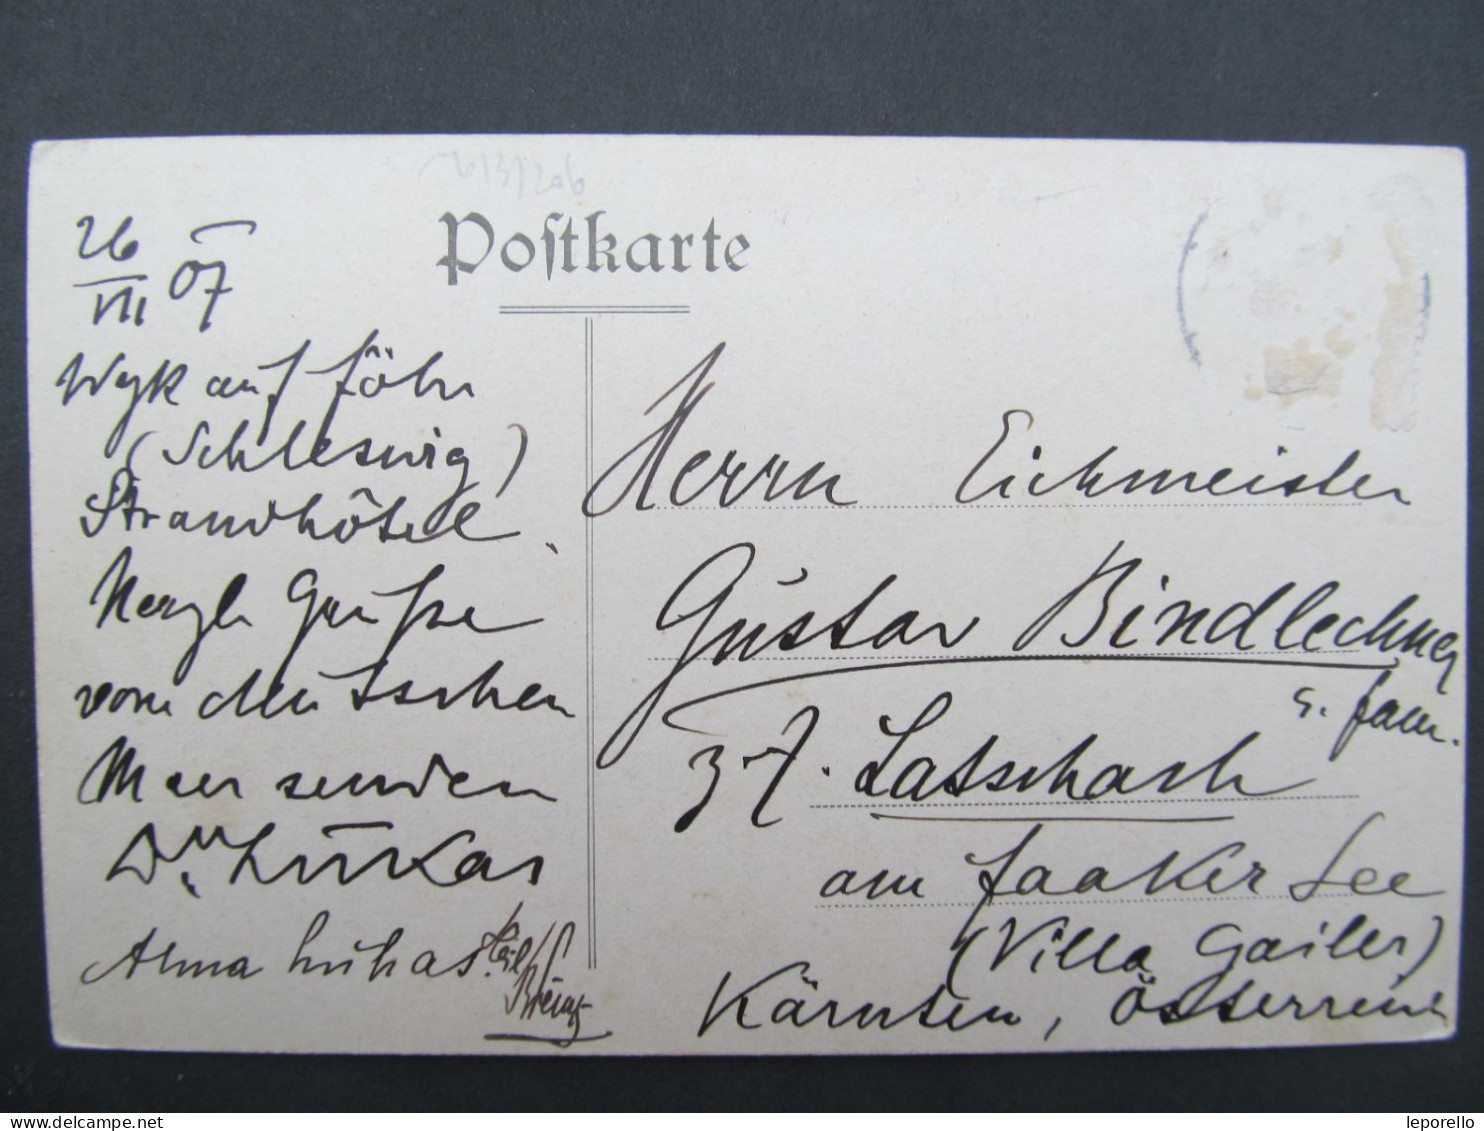 6/3/206
Postkarte
26/VII 07
Wyk auf Föhr
(Schleswig)
Strandhôtel.
Herzl. Grüße
vom deutschen
Meer senden
Dr. Lukas
Alma Lukas
Herrn Eichmeister
Gustav Bindlechner
s. Fam.
z. Z. Latschach
am Faaker See
(Villa Gailer)
Kärnten, Österreich
delcampe.net
leporello